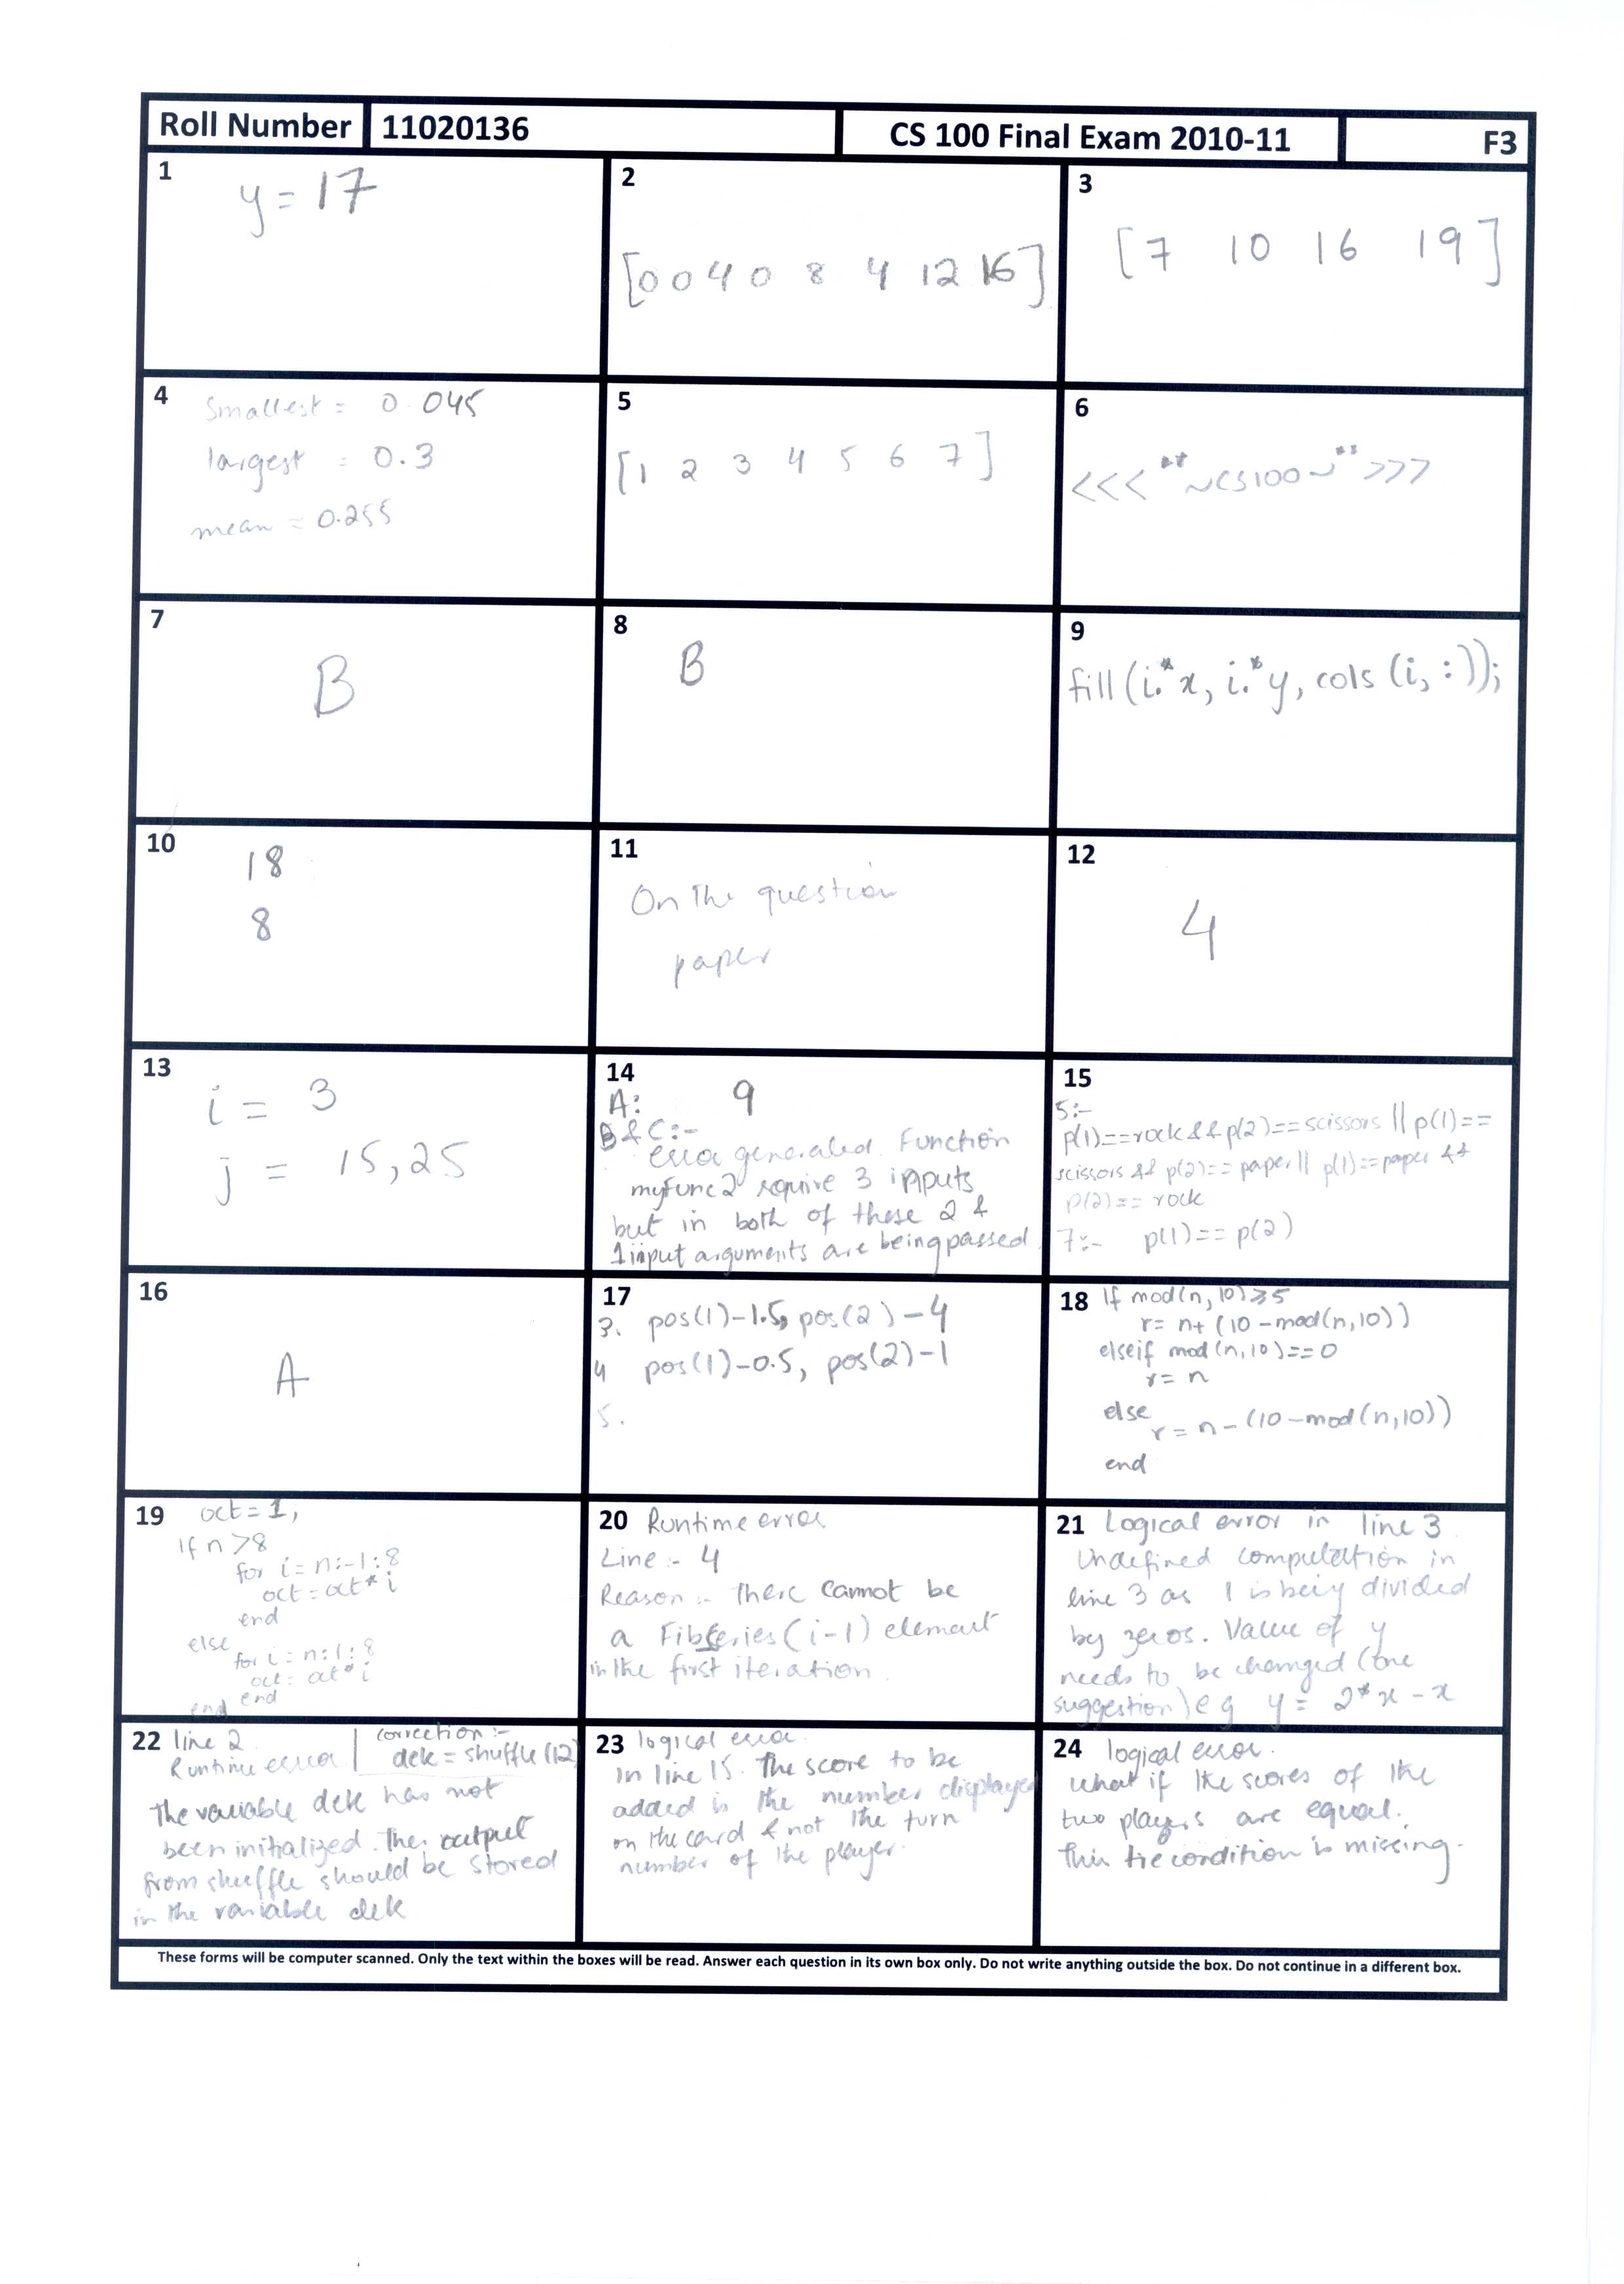 Roll Number 11020136 CS 100 Final Exam 2010-11 F3
1
y = 17
2
[0 0 4 0 8 4 12 16]
3
[7 10 16 19]
4
Smallest = 0.045
largest = 0.3
mean = 0.255
5
[1 2 3 4 5 6 7]
6
<<<**~CS100~**>>>
7
B
8
B
9
fill(i.*x, i.*y, cols(i,:));
10
18
8
11
On the question
paper
12
4
13
i = 3
j = 15,25
14
A: 9
B & C:-
error generated. Function
myfunc2 require 3 inputs
but in both of these 2 &
1 input arguments are being passed.
15
5:-
p(1)==rock&&p(2)==scissors || p(1)==
scissors && p(2)==paper|| p(1)==paper &&
p(2)== rock
7:- p(1)== p(2)
16
A
17
3. pos(1)-1.5, pos(2)-4
4 pos(1)-0.5, pos(2)-1
5.
18
If mod(n,10)≥5
r= n+ (10-mod(n,10))
elseif mod(n,10)==0
r= n
else
r= n-(10-mod(n,10))
end
19
oct=1,
If n>8
for i=n:-1:8
oct=oct*i
end
else
for i=n:1:8
oct=oct*i
end
end
20
Runtime error
Line:- 4
Reason:- there cannot be
a FibSeries(i-1) element
in the first iteration.
21
Logical error in line 3
Undefined computation in
line 3 as 1 is being divided
by zeros. Value of y
needs to be changed (one
suggestion) eg y = 2*x-x
22
line 2
Runtime error
correction:-
dek = shuffle(12)
The variable dek has not
been initialized. The output
from shuffle should be stored
in the variable dek
23
logical error.
In line 15. The score to be
added is the number displayed
on the card & not the turn
number of the player.
24
logical error.
what if the scores of the
two players are equal.
This tie condition is missing.
These forms will be computer scanned. Only the text within the boxes will be read. Answer each question in its own box only. Do not write anything outside the box. Do not continue in a different box.